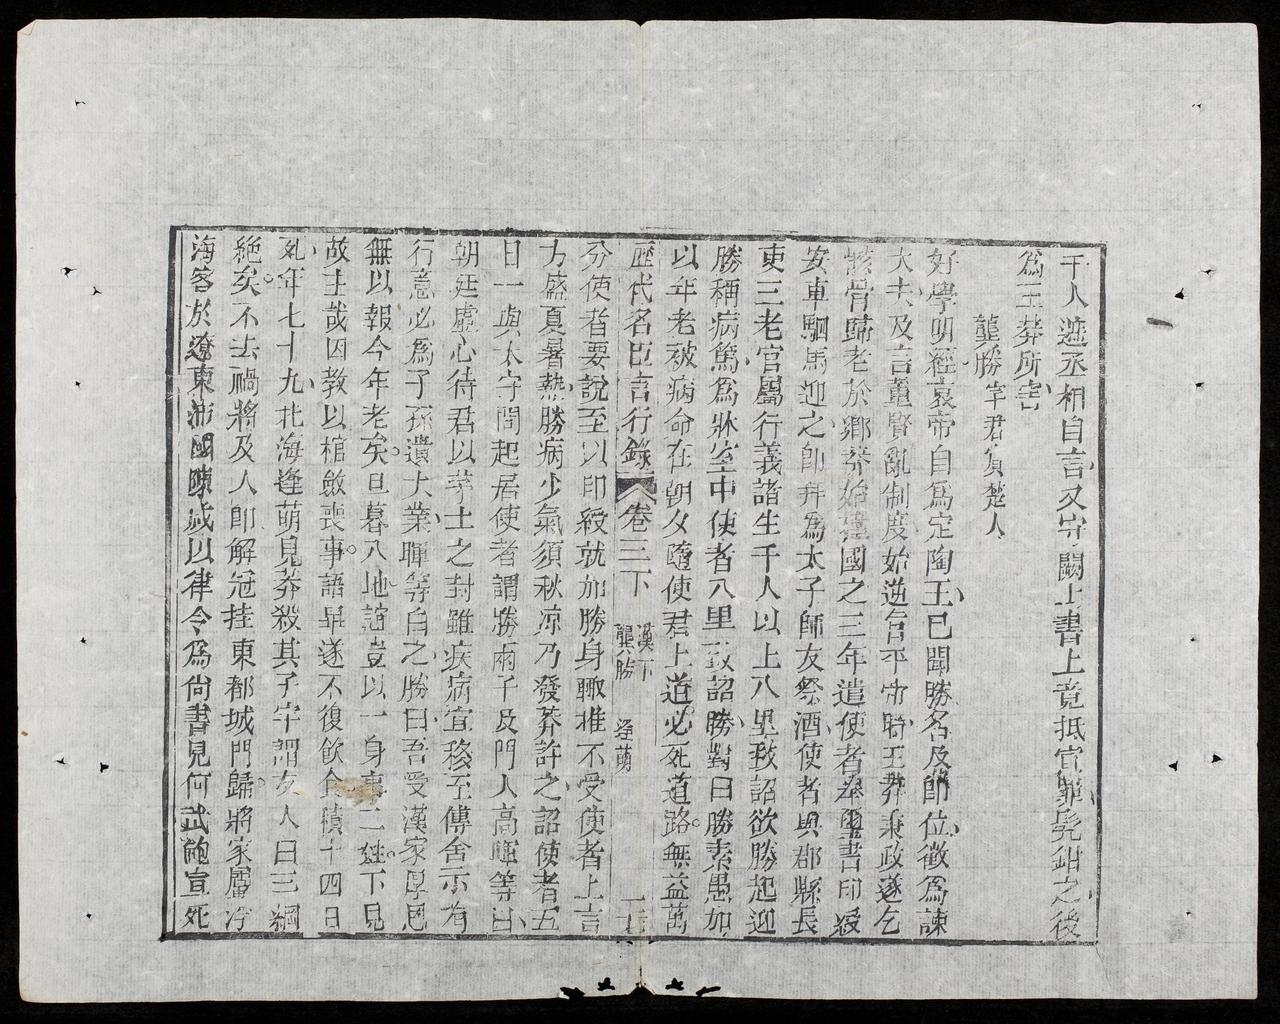 千人遮丞相自言又守闕上書上竟抵宣罪髡鉗之後
爲王莽所害
龔勝字君賓楚人
好學明經哀帝自爲定陶王已聞勝名及卽位徵爲諫
大夫及言董賢亂制度始逆旨平帝時王莽秉政遂乞
骸骨歸老於鄉莽始建國之三年遣使者奉璽書印綬
安車駟馬迎之卽拜爲太子師友祭酒使者與郡縣長
吏三老官屬行義諸生千人以上入里致詔欲勝起迎
勝稱病篤爲牀室中使者入里致詔勝對曰勝素愚加
以年老被病命在朝夕隨使君上道必死道路無益萬
歷代名臣言行錄 卷三下 漢下 龔勝 逢萌
分使者要說至以印綬就加勝身輙推不受使者上言
方盛夏暑熱勝病少氣須秋凉乃發莽許之詔使者五
日一與太守問起居使者謂勝兩子及門人高暉等曰
朝廷虛心待君以茅土之封雖疾病宜移至傳舍示有
行意必爲子孫遺大業暉等白之勝曰吾受漢家厚恩
無以報今年老矣旦暮入地誼豈以一身事二姓下見
故主哉因教以棺斂喪事語畢遂不復飲食積十四日
死年七十九北海逢萌見莽殺其子宇謂友人曰三綱
絕矣不去禍將及人卽解冠挂東都城門歸將家屬浮
海客於遼東沛國陳咸以律令爲尙書見何武鮑宣死